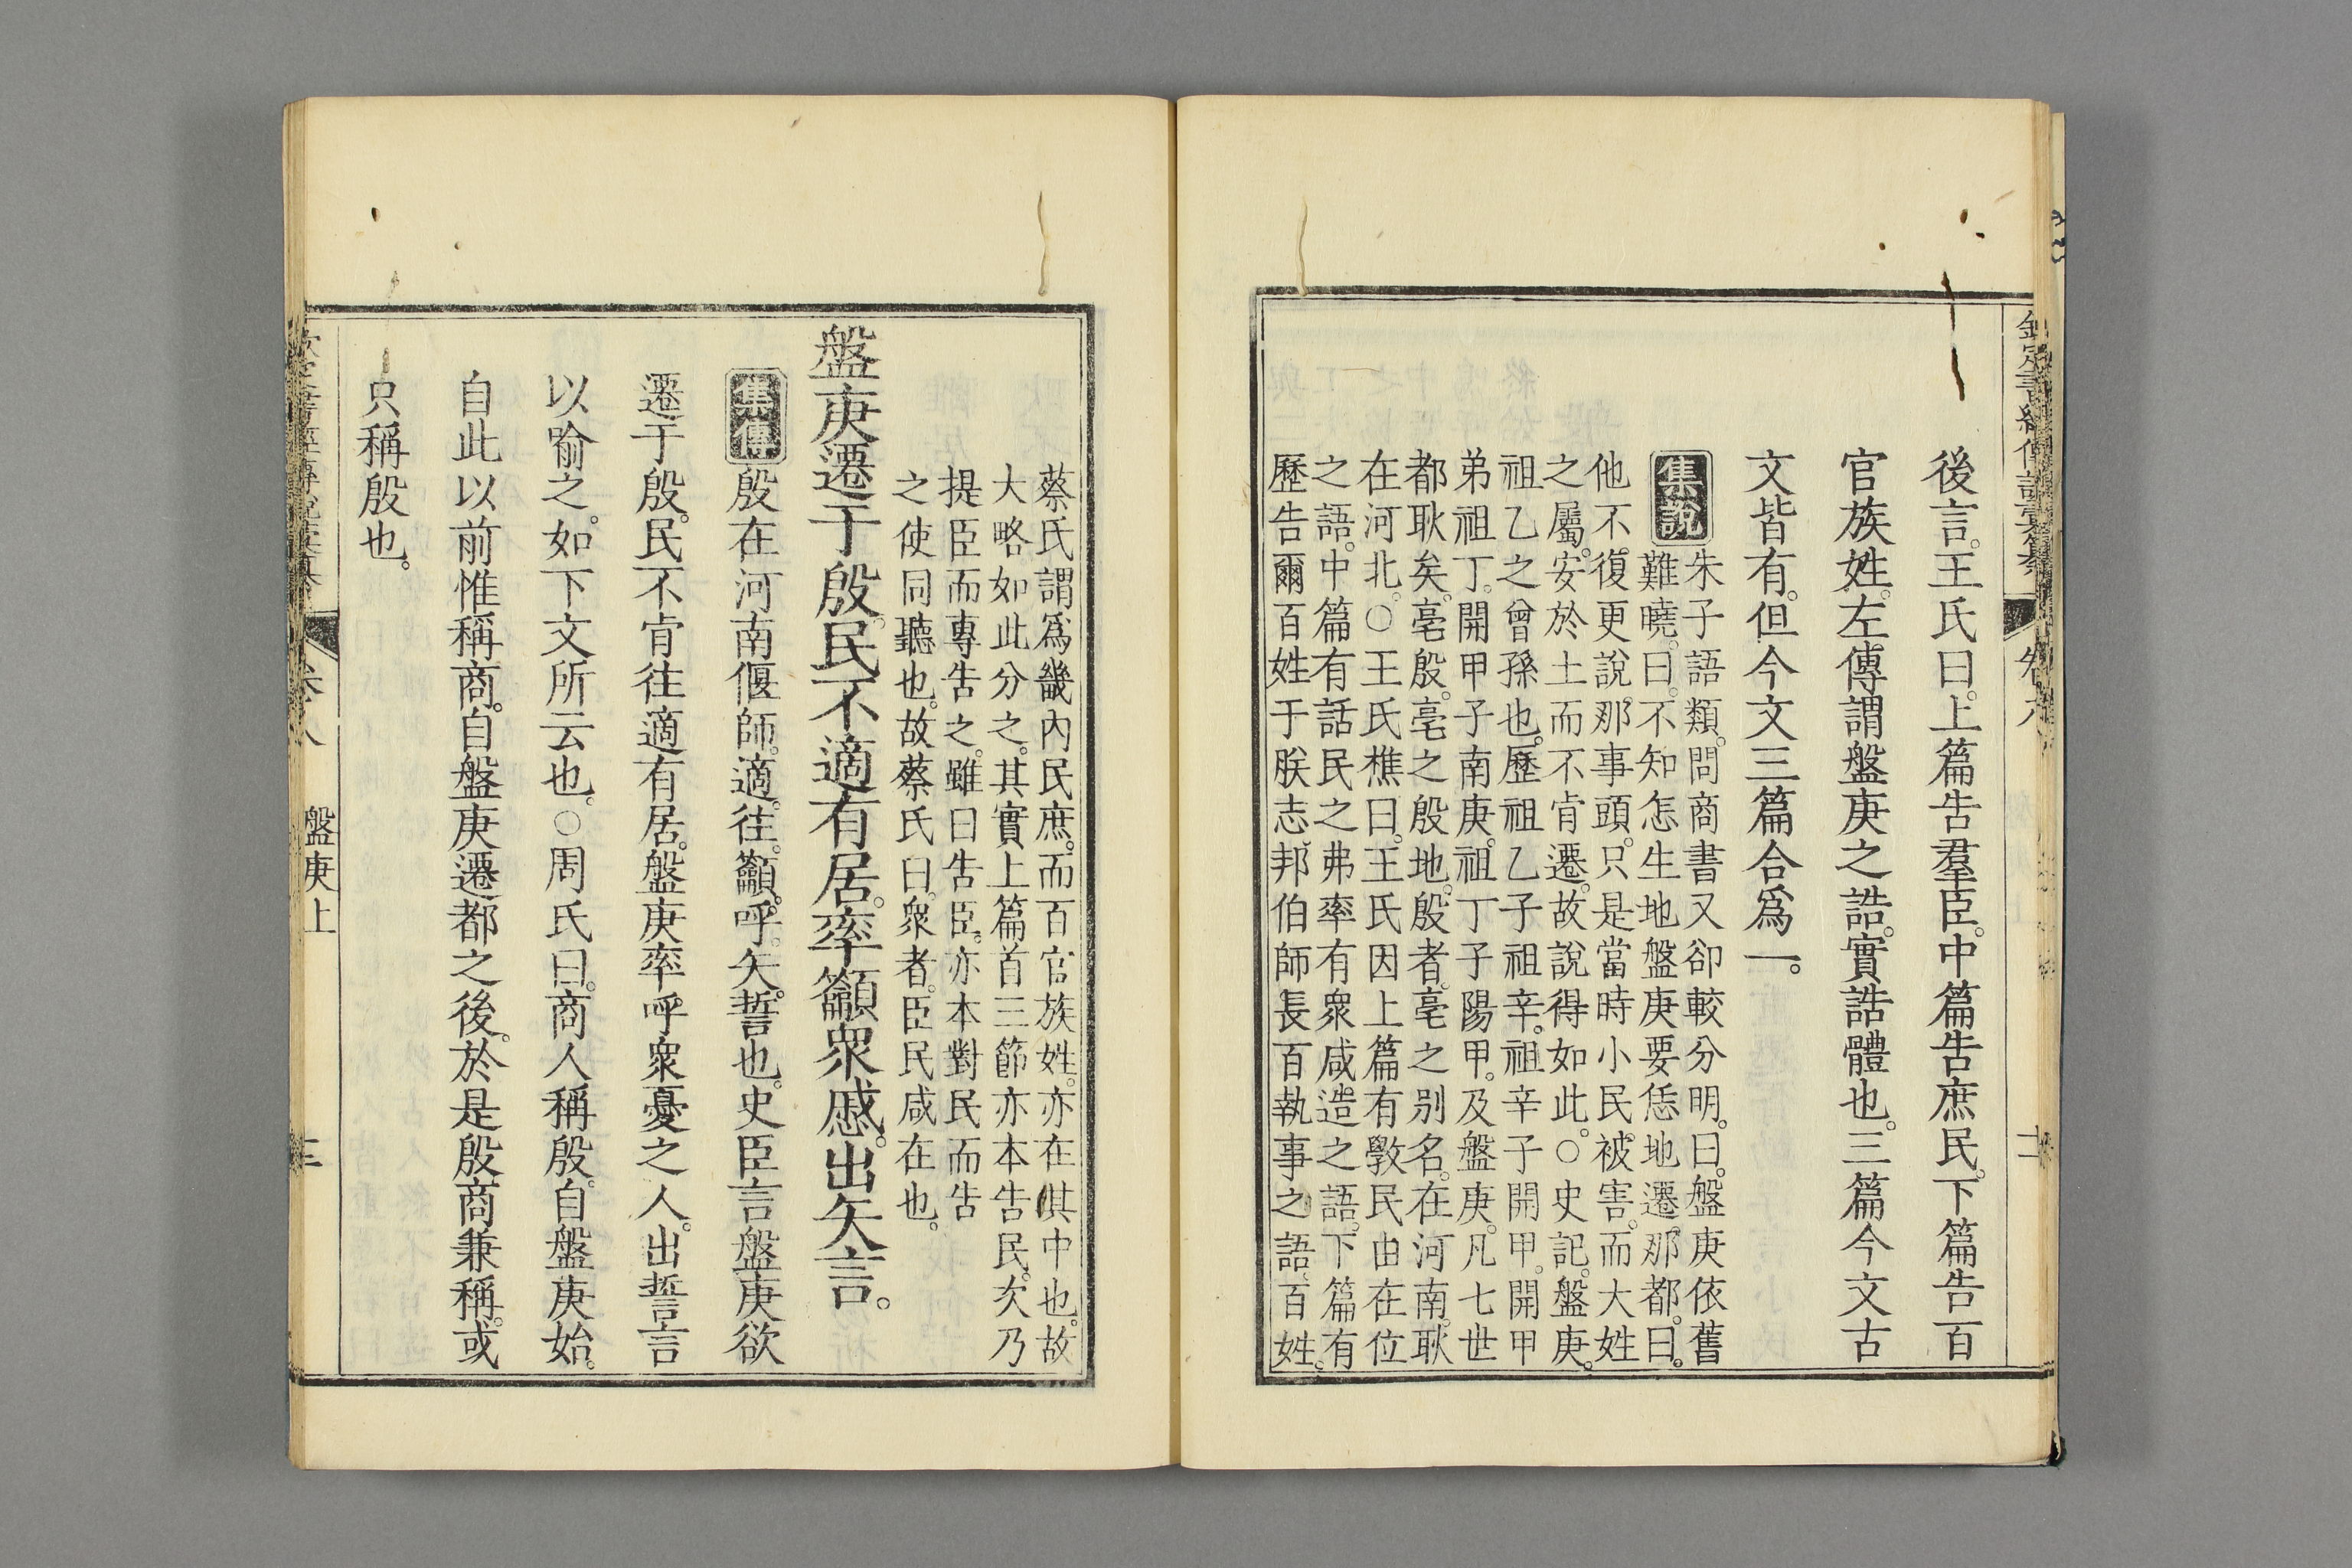 欽定書經傳說彙纂 卷 二
後言。王氏曰。上篇告羣臣。中篇告庶民。下篇告百
官族姓。左傳謂盤庚之誥。實誥體也。三篇今文古
文皆有。但今文三篇合爲一。
集說 朱子語類。問商書又卻較分明。曰。盤庚依舊
難曉。曰。不知怎生地盤庚要恁地遷。那都。曰。
他不復更說那事頭。只是當時小民被害。而大姓
之屬。安於土而不肯遷。故說得如此。○史記。盤庚。
祖乙之曾孫也。歷祖乙子祖辛。祖辛子開甲。開甲
弟祖丁。開甲子南庚。祖丁子陽甲。及盤庚。凡七世
都耿矣。亳殷。亳之殷地。殷者。亳之别名。在河南。耿
在河北。○王氏樵曰。王氏因上篇有斆民由在位
之語。中篇有話民之弗率有衆咸造之語。下篇有
歷告爾百姓于朕志邦伯師長百執事之語。百姓。
蔡氏謂爲畿内民庶。而百官族姓。亦在其中也。故
大略如此分之。其實上篇首三節亦本告民。次乃
提臣而專告之。雖曰告臣。亦本對民而告
之使同聽也。故蔡氏曰。衆者。臣民咸在也。
盤庚遷于殷。民不適有居。率籲衆慼。出矢言。
集傳 殷在河南偃師。適。往。籲。呼。矢。誓也。史臣言盤庚欲
遷于殷。民不肯往適有居。盤庚率呼衆憂之人。出誓言
以喻之。如下文所云也。○周氏曰。商人稱殷。自盤庚始。
自此以前惟稱商。自盤庚遷都之後。於是殷商兼稱。或
只稱殷也。
欽定書經傳說彙纂 卷八 盤庚上 三